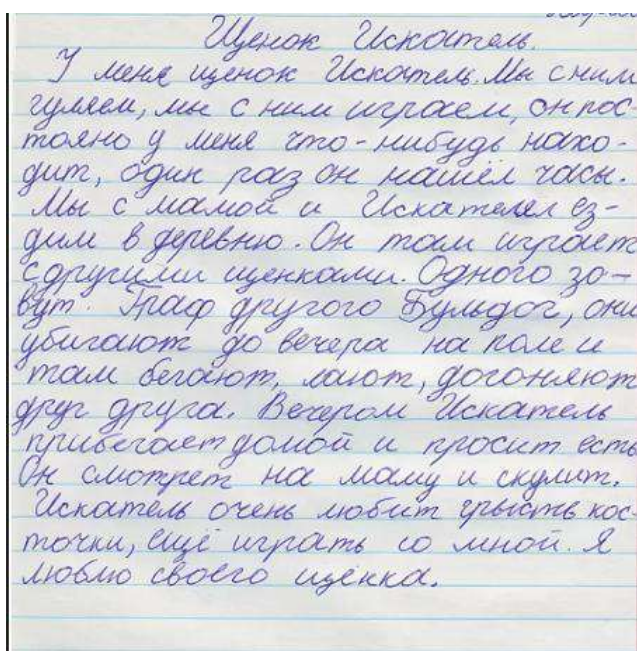 Щенок Искатель.
У меня щенок Искатель. Мы с ним
гуляем, мы с ним играем, он пос
тояно у меня что-нибудь нахо-
дит, один раз он нашёл часы.
Мы с мамой и Искателем ез-
дим в деревню. Он там играет
с другими щенками. Одного зо-
вут. Граф другого Бульдог, они
убигают до вечера на поле и
там бегают, лают, догоняют
друг друга. Вечером Искатель
прибегает домой и просит есть
Он смотрет на маму и скулит.
Искатель очень любит грысть кос-
точки, ещё играть со мной. Я
люблю своего щенка.